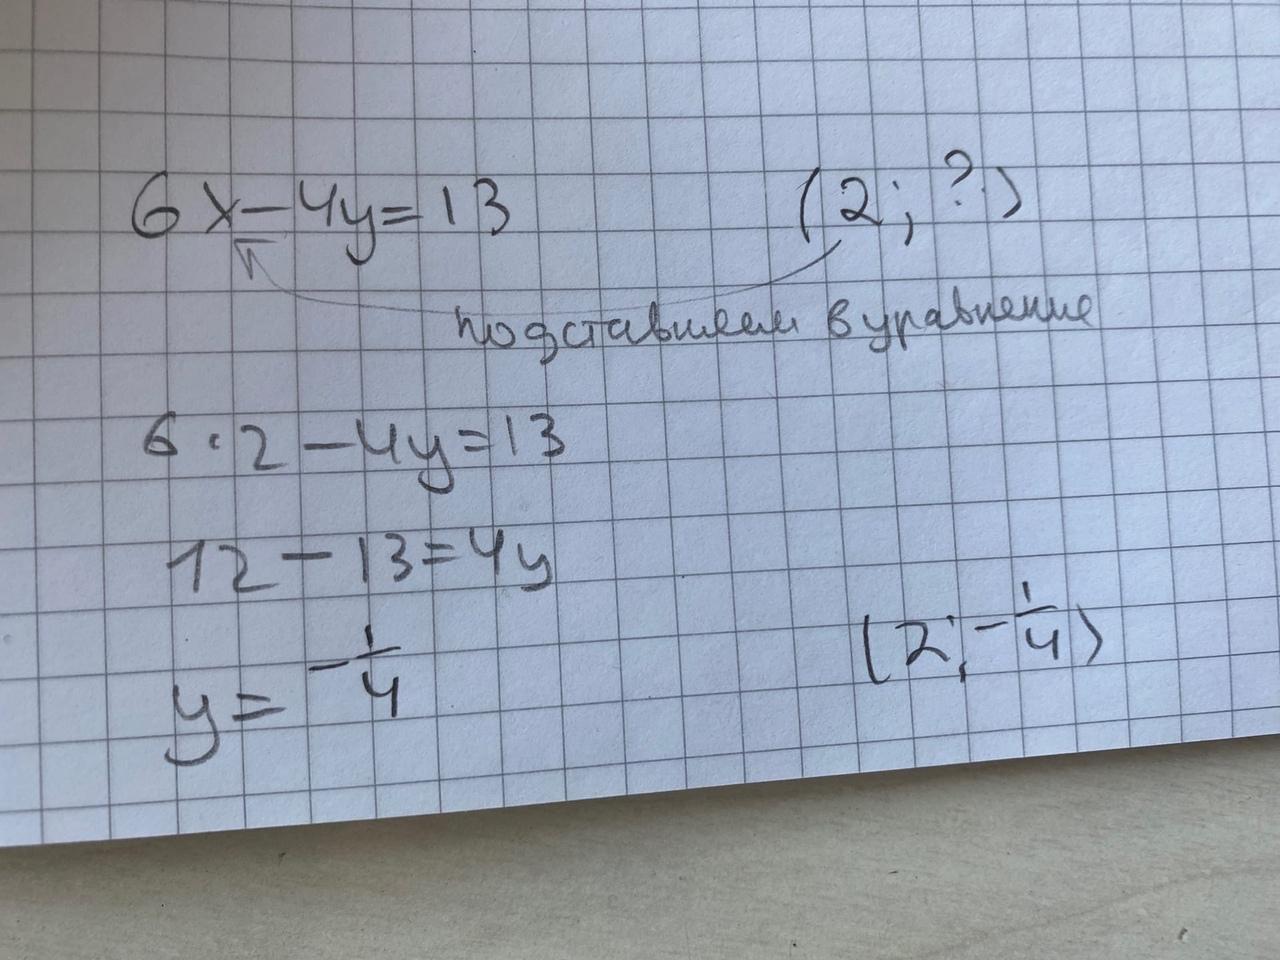 6x-4y=13 (2; ?)
подставляем в уравнение
6·2-4y=13
12-13=4y
y=-1/4 (2;-1/4)